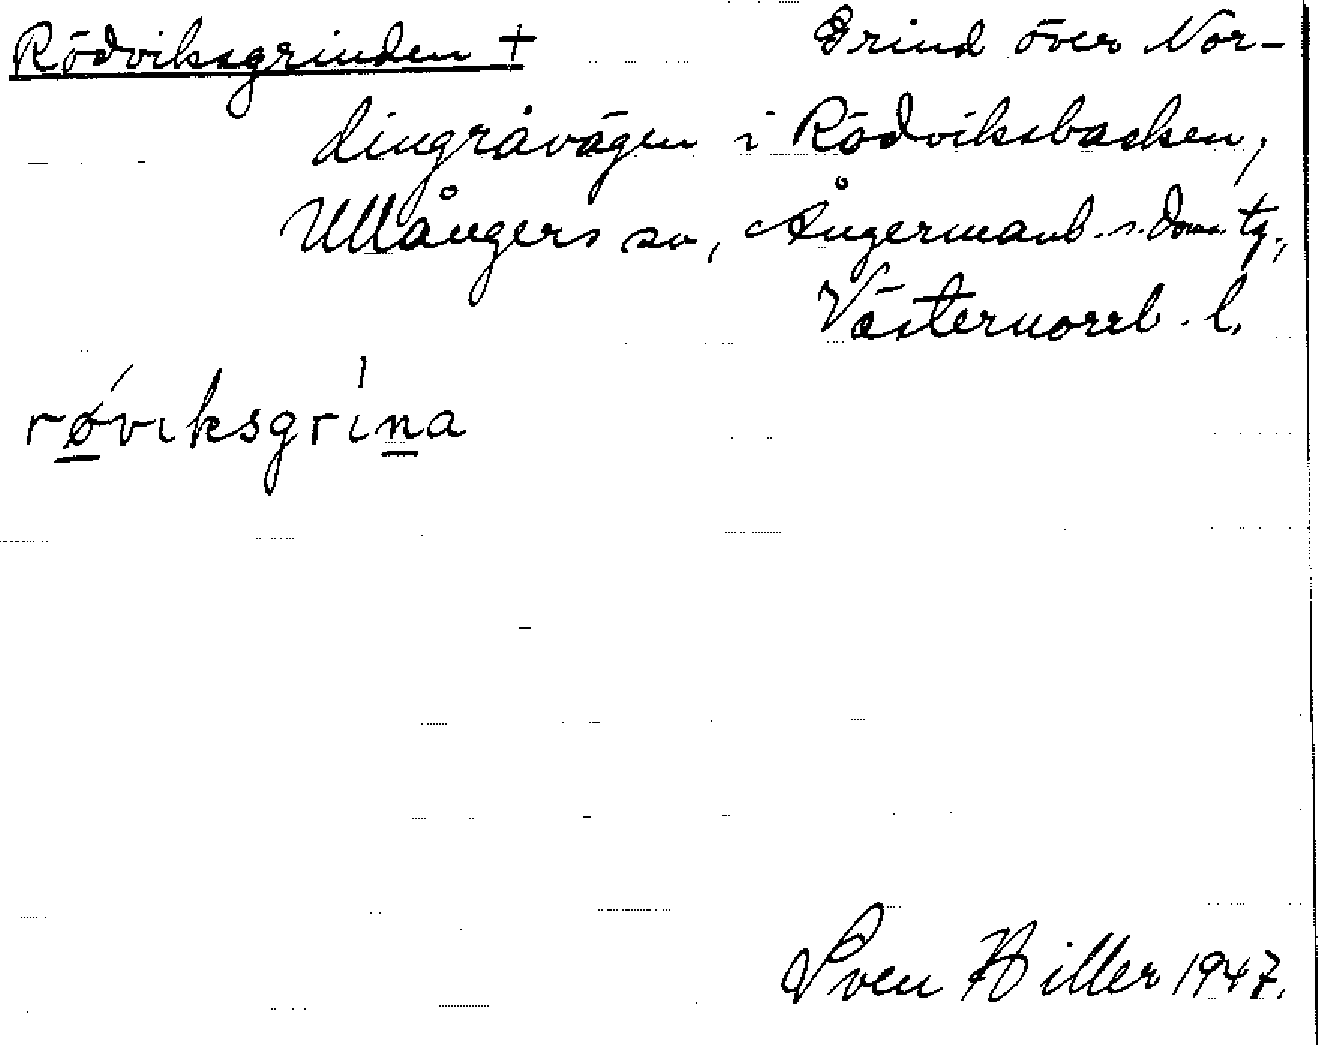 Rödviksgrinden + Grind över Nor-
dingråvägen i Rödviksbacken,
Ullångers sn, Ångermanl. s. doms. tg,
Västernorrl. l.
røviksgrina
Sven Hiller 1947.